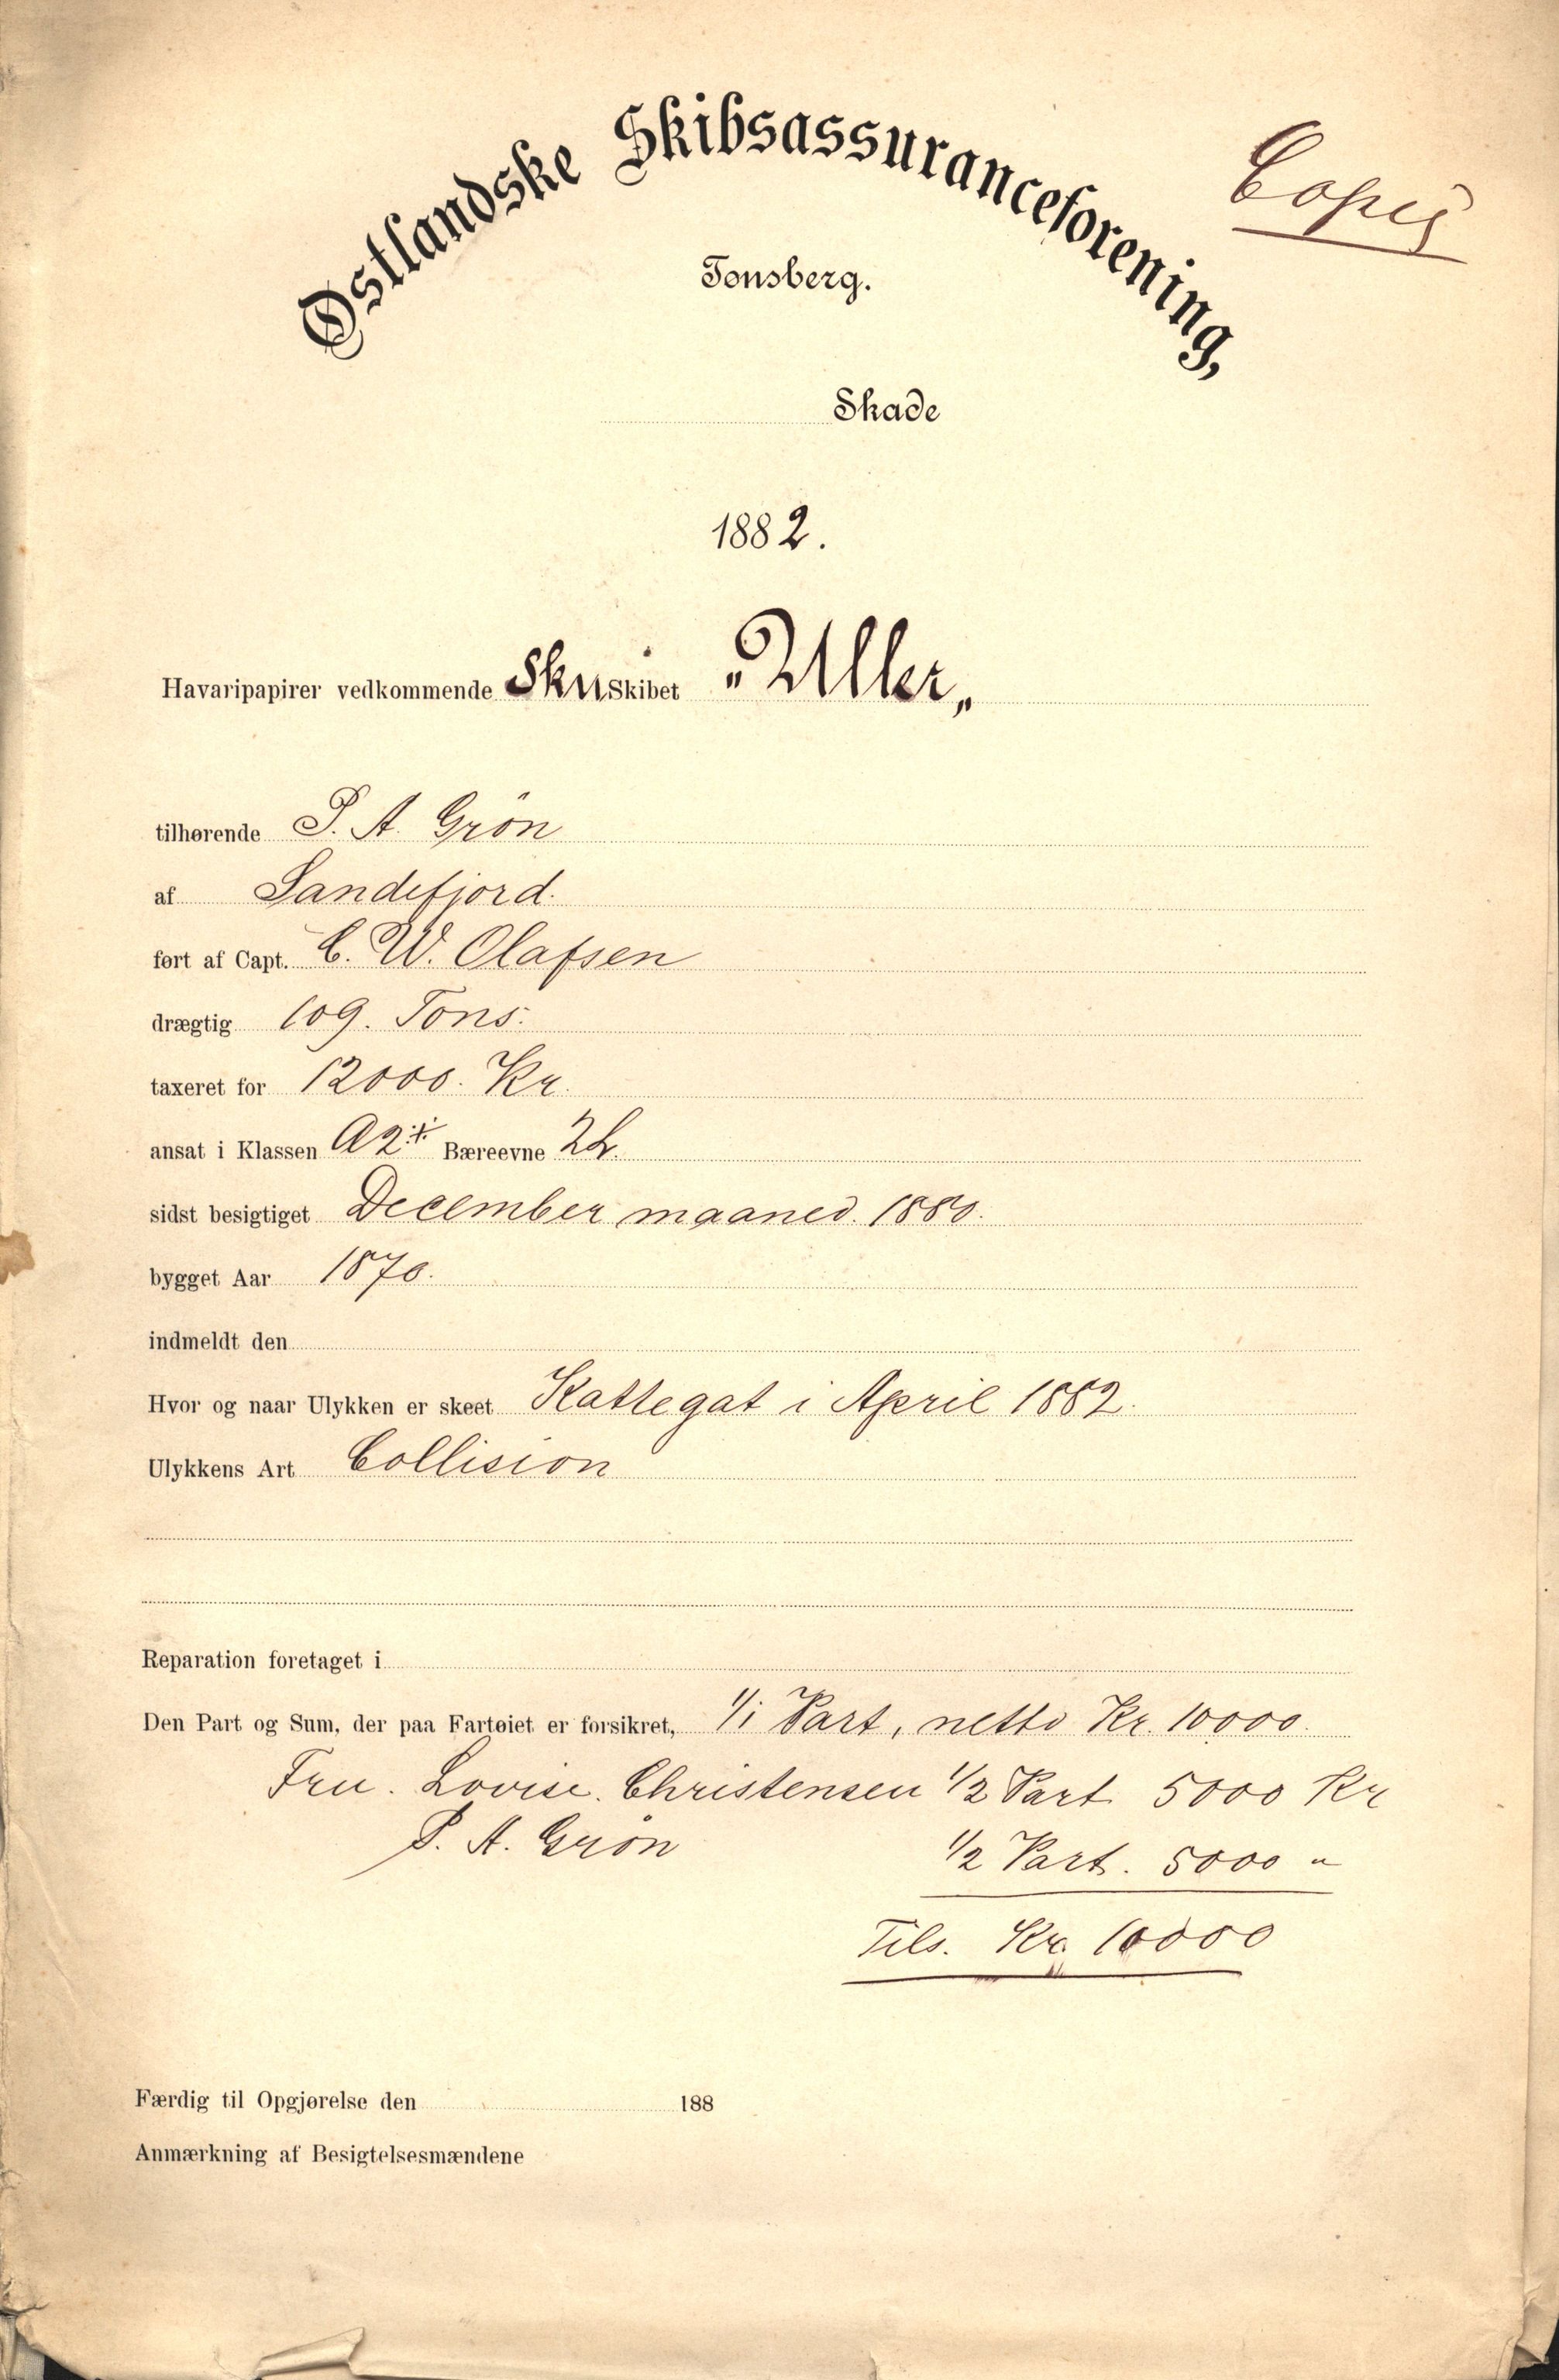 Østlandske Skibsassuranceforening,
Copi
Tønsberg.
Skade
1882.
Havaripapirer vedkommende Sku Skibet "Uller"
tilhørende P. A. Grøn
af Sandefjord.
ført af Capt. C. W. Olafsen
drægtig 109. Tons.
taxeret for 12000. Kr.
ansat i Klassen A2 Bæreevne
sidst besigtiget December maaned. 1880.
bygget Aar 1870.
indmeldt den
Hvor og naar Ulykken er skeet Kattegat i April 1882.
Ulykkens Art Collision
Reparation foretaget i
Den Part og Sum, der paa Fartøiet er forsikret, 1/1 Part, netto Kr. 10000.
Fru. Lovise. Christensen 1/2 Part 5000 Kr
P. A. Grøn 1/2 Part. 5000 "
Tils. Kr. 10000
Færdig til Opgjørelse den 188
Anmærkning af Besigtelsesmændene